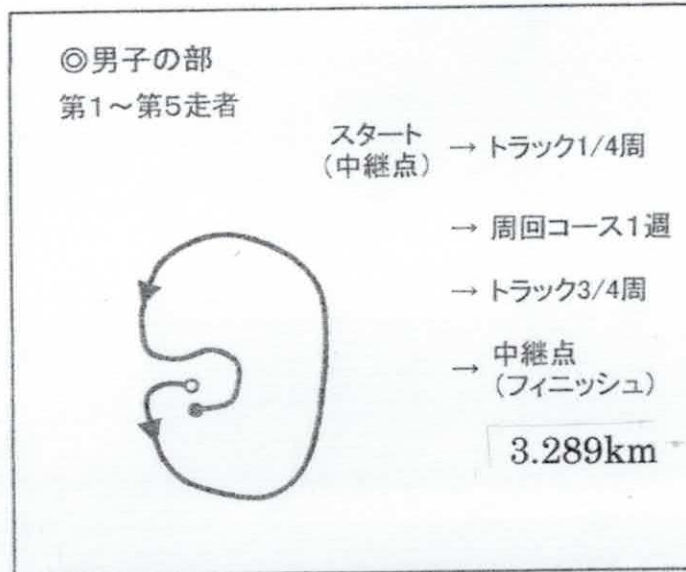 ◎男子の部
第1～第5走者
スタート
(中継点)
→ トラック1/4周
→ 周回コース1週
→ トラック3/4周
→ 中継点
(フィニッシュ)
3.289km